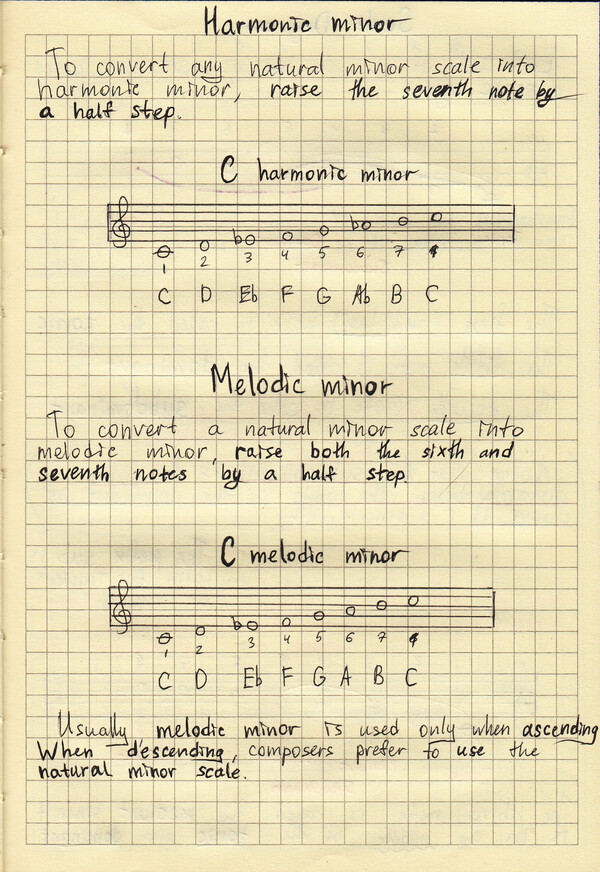 Harmonic minor
To convert any natural minor scale into
harmonic minor, raise the seventh note by
a half step.
C harmonic minor
♭ ♭
1 2 3 4 5 6 7 1
C D Eb F G Ab B C
Melodic minor
To convert a natural minor scale into
melodic minor, raise both the sixth and
seventh notes by a half step.
C melodic minor
♭
1 2 3 4 5 6 7 1
C D Eb F G A B C
Usually melodic minor is used only when ascending
When descending, composers prefer to use the
natural minor scale.